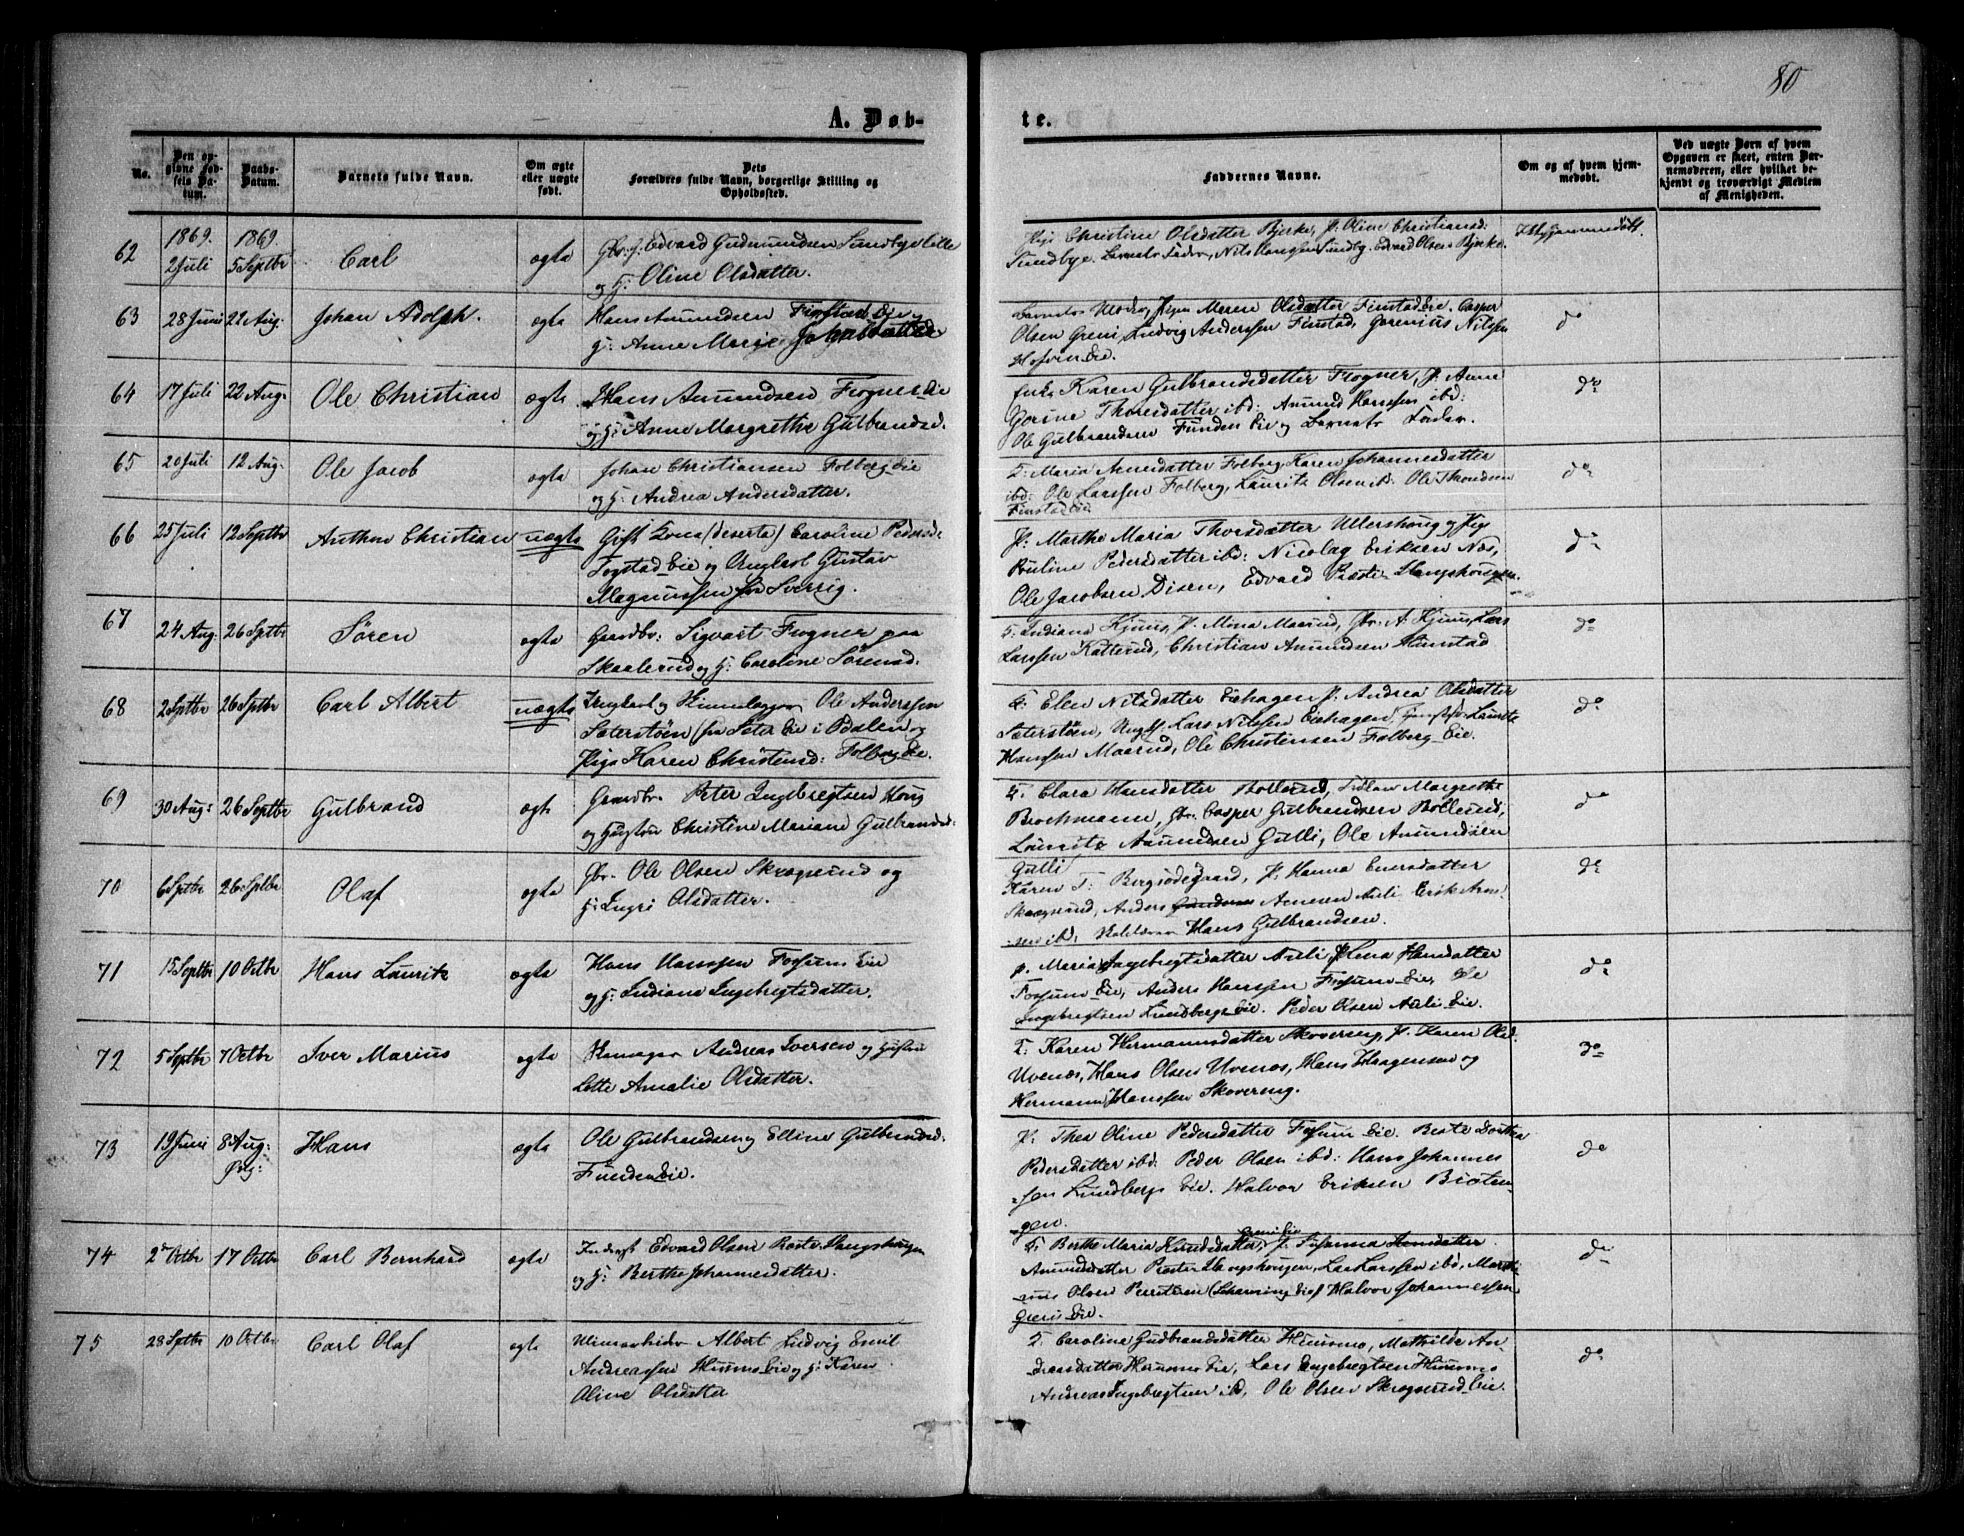 80
A. Døb-
te.
No.
Den op-
givne Fød-
sels Da-
tum.
Daabs-
Datum.
Barnets fulde Navn.
Om ægte
eller uægte
født.
Dets
Forældres fulde Navn, borgerlige Stilling og
Opholdssted.
Faddernes Navne.
Om og af hvem hjem-
medøbt.
Ved uægte Børn af hvem
Opgaven er skeet, enten Bar-
nemoderen, eller hvilket be-
kjendt og troværdigt Medlem
af Menigheden.
62
1869.
2 Juli
1869.
5 Septbr
Carl
ægte
Gbr. f. Edvard Gudmundsen Sundbye Lille
og H: Oline Olsdatter.
Pige Christine Olsdatter Bjerke, P. Oline Christiansd:
Sundbye. Barnets Fader, Nils Hansen Sundby. Edvard Olsen Bjerke.
Ikke hjemmedøbt.
63
28 Juni
22 Aug:
Johan Adolph.
ægte
Hans Amundsen Finstad Eie og
H: Anne Marie
Barnets Moder, Pigen Maren Olsdatter Finstad Eie. Casper
Olsen Greni, Ludvig Anderssen Finstad, Gorenius Nilssen
Hofvin Eie.
do
64
17 Juli
22 Aug:
Ole Christian
ægte
Hans Amundsen Frogner Eie
og H: Anne Margrethe Gulbrandsd.
Enke Karen Gulbrandsdatter Frogner, P. Anne
Gorine Thorsdatter ibd: Amund Hanssen ibd:
Ole Gulbrandsen Funden Eie og Barnets Fader.
do
65
20 Juli
12 Aug:
Ole Jacob
ægte
Johan Christiansen Folberg Eie
og H: Andrea Andersdatter.
G: Maria Arnesdatter Folberg, Karen Johannesdatter
ibd: Ole Larssen Folberg, Lauritz Olsen ibd: Ole Thomdsen
Finstad Eie
do
66
25 Juli
12 Septbr
Anthon Christian
uægte
Gift Kone (deserta) Caroline Pedersd:
Eie og Ungkarl Gustav
Magnussen fra Sverrig.
P. Marthe Maria Thorsdatter Ullershoug og Pige
Pauline Pedersdatter ibd: Nicolay Eriksen Næs,
Ole Jacobsen Disen, Edvard Præste-Haugshougen.
do
67
24 Aug:
26 Sptbr
Sören
ægte
Gaardbr: Sigvart Fogner paa
Skaalerud og H: Caroline Sörensd.
G: Indiana Kjuus, P. Mina Maarud, Gbr. A. Kjuus, Lars
Larssen Katterud, Christian Amundsen Hanstad
do
68
2 Sptbr
26 Sptbr
Carl Albert
uægte
Ungkarl og Ole Anderssen
Sæterstøen (fra Sæter Eie i Odalen og
Pige Karen Christensd: Folberg Eie.
G: Elen Nilsdatter Eiehagen, P. Andrea Olsdatter
Sæterstøen, Ungk. Lars Nilssen Eiehagen, Lauritz
Hanssen Maarud, Ole Christensen Folberg Eie.
do
69
30 Aug:
26 Septbr
Gulbrand
ægte
Gaardbr. Peter Ingebregtsen Houg
og Hustru Christine Mariane Gulbrandsd:
G: Clara Hansdatter Bollerud, Frøken Margrethe
Brochmann, Gbr. Casper Gulbrandsen Bollerud,
Lauritz Amundsen Gulli, Ole Amundsen
Gulli
do
70
6 Sptbr
26 Sptbr
Olaf
ægte
Gbr. Ole Olsen Skrøperud og
H: Ingri Olsdatter.
Karen T: Bergsødegaard, P. Hanna Enersdatter
Anders Arnesen Auli Erik Arne-
sen ibd: Hans Gulbrandsen.
do
71
15 Septbr
10 Octbr
Hans Lauritz
ægte
Hans Hanssen Fossum Eie
og H: Indiana Ingebregtsdatter.
P. Maria Ingebregtsdatter Auli, P. Lina Hansdatter
Fossum Eie, Anders Hanssen Fossum Eie, Ole
Ingebregtsen Lundberg Eie. Peder Olsen Auli Eie.
do
72
5 Septbr
7 Octbr
Iver Marius
ægte
Andreas Iversen og Hustru
Lette Amalie Olsdatter.
G: Karen Hermannsdatter Skovereng, P. Karen Olsd.
Uvenæs, Hans Olsen Uvenæs, Hans Haagensen og
Hermann Hanssen Skovereng.
do
73
19 Juni
8 Aug:
Hans
ægte
Ole Gulbrandsen og Elline Gulbrandsd:
Funden Eie.
P. Thea Oline Pedersdatter Fossum Eie. Berte Dorthea
Pedersdatter ibd: Peder Olsen ibd: Hans Johannes-
sen Lundberg Eie. Halvor Eriksen Braaten-
gen.
do
74
2 Octbr
17 Octbr
Carl Bernhard
ægte
Edvard Olsen Præste-Haugshougen
og H: Berthe Johannesdatter.
G: Berthe Maria Knudsdatter, P. Susanna
Amundsdatter Præste-Haugshougen, Lars Larssen ibd, Marti-
nus Olsen Halvor Johannessen
Greni Eie.
do
75
28 Sptbr
10 Octbr
Carl Olaf
ægte
Minearbeider Albert Ludvig Emil
Andreassen Huusmo Eie og H: Karen
Oline Olsdatter
G: Caroline Gudbrandsdatter Huusmo, Mathilde An-
dersdatter Huusmo Eie, Lars Ingebregtsen Huusmo
Andreas Ingebregtsen ibd, Ole Olsen Skrøperud Eie.
do